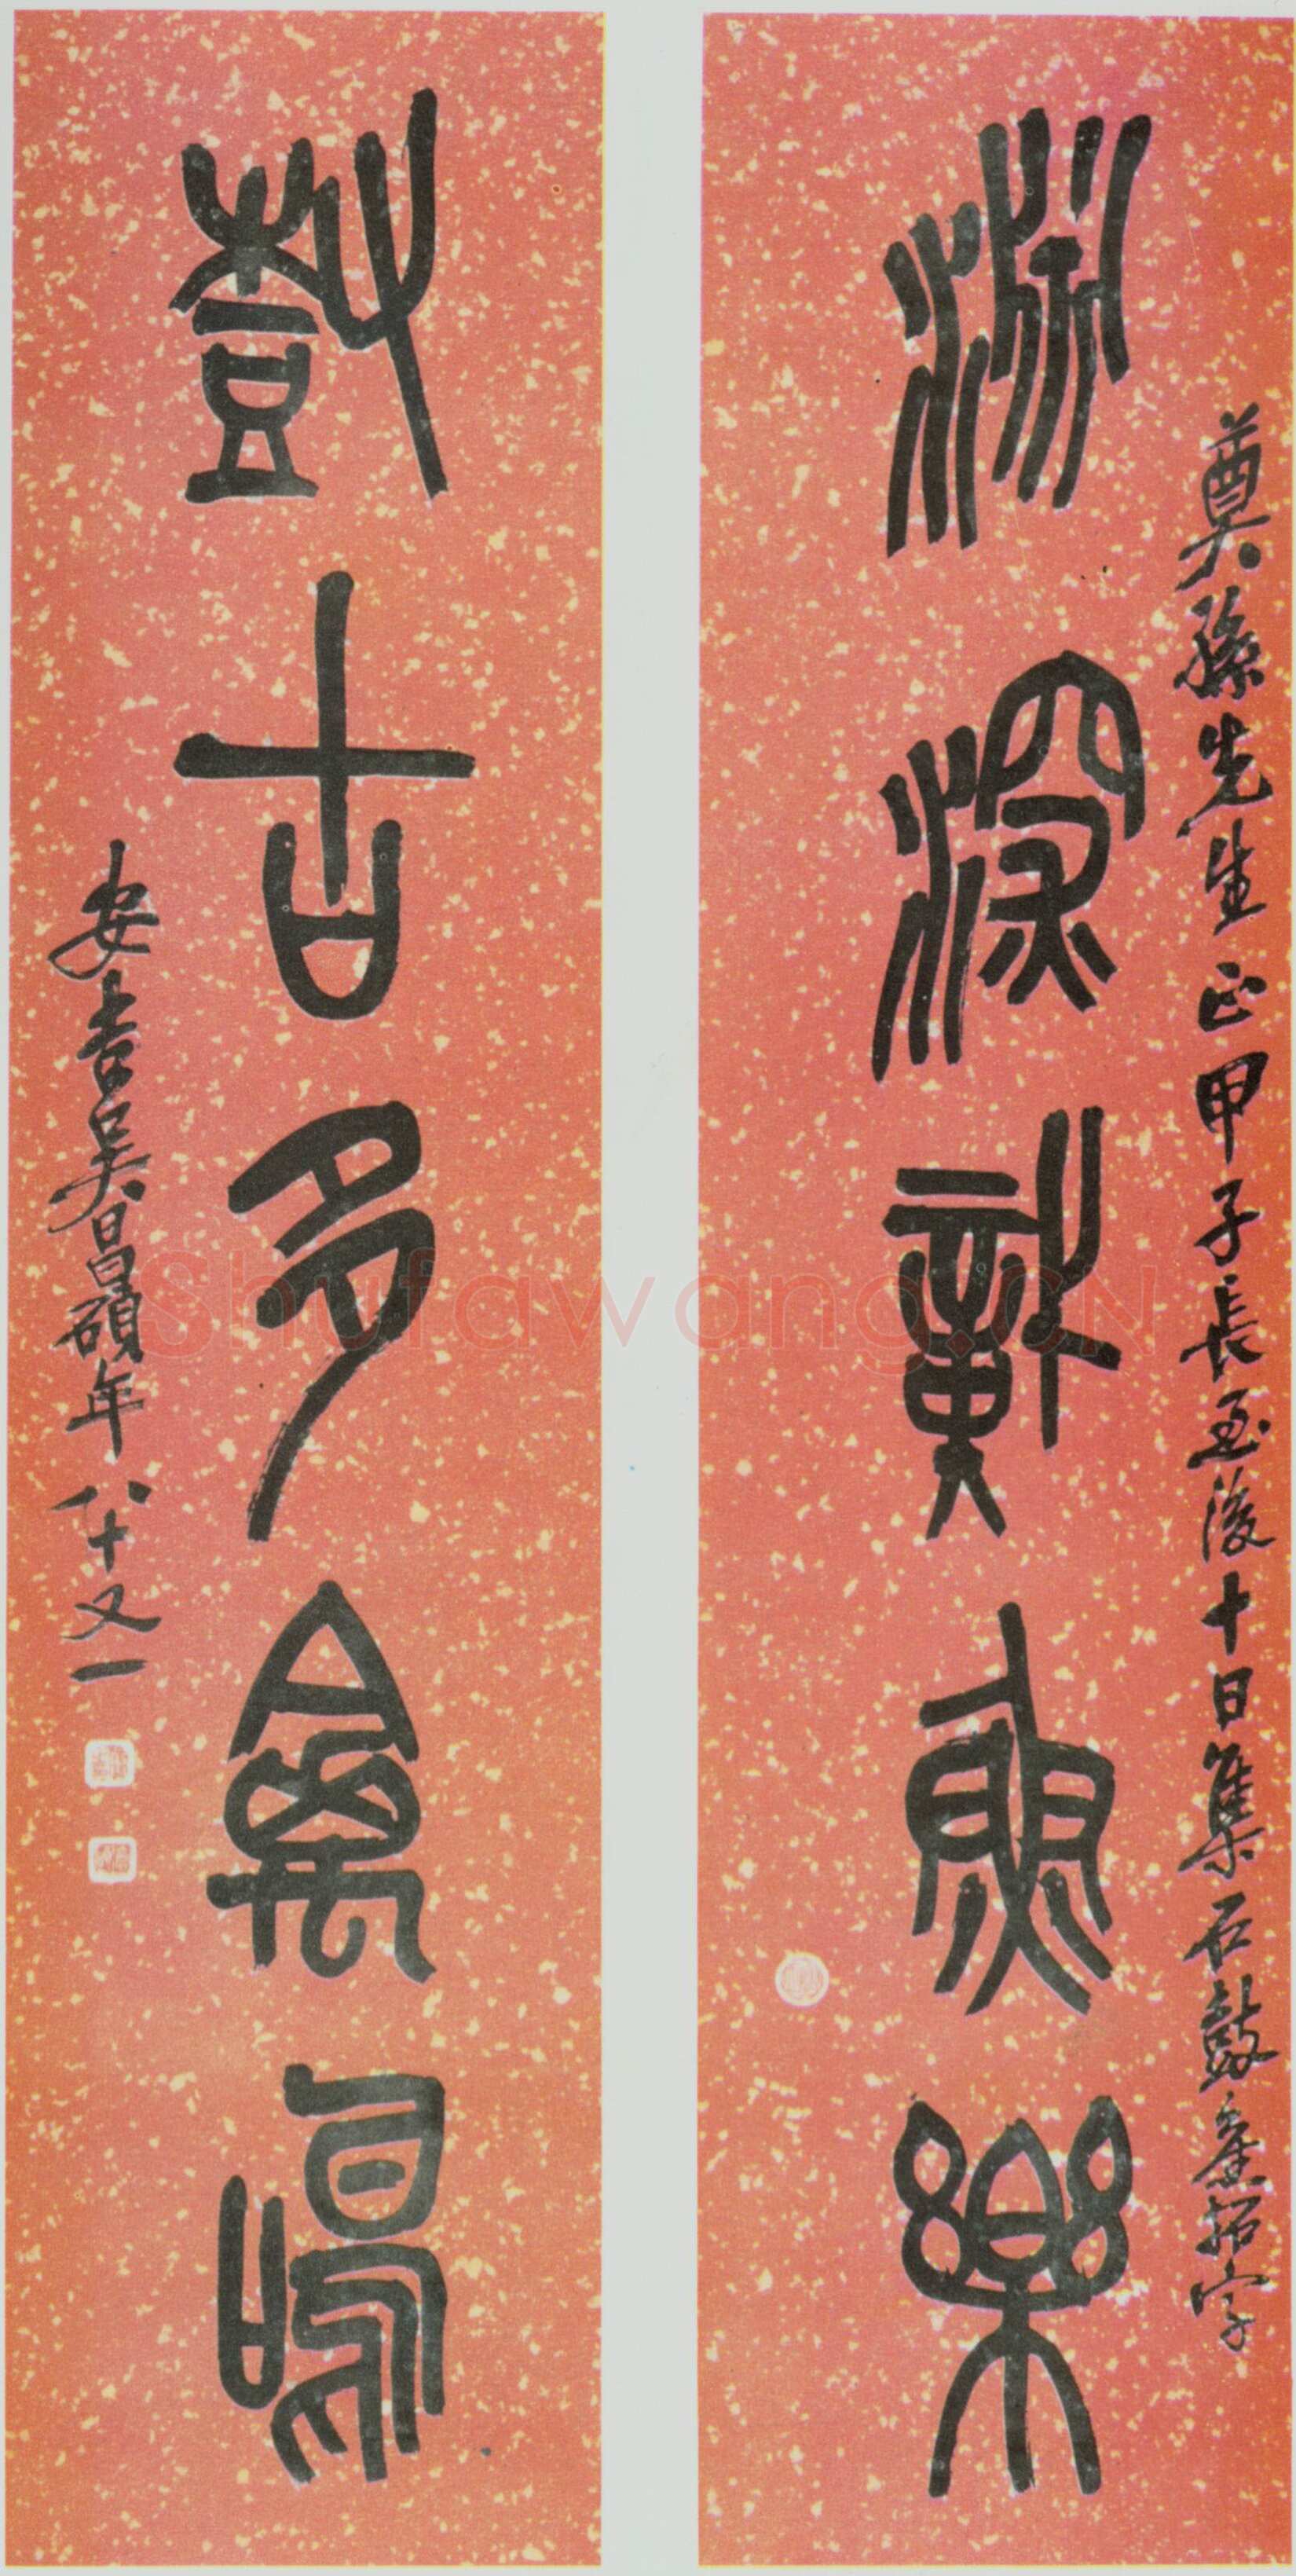 奠孫先生正甲子長至後十日集石鼓舊拓字
淵深魚樂
樹古多禽鳴
安吉吳昌碩年八十又一
Shufawang.CN